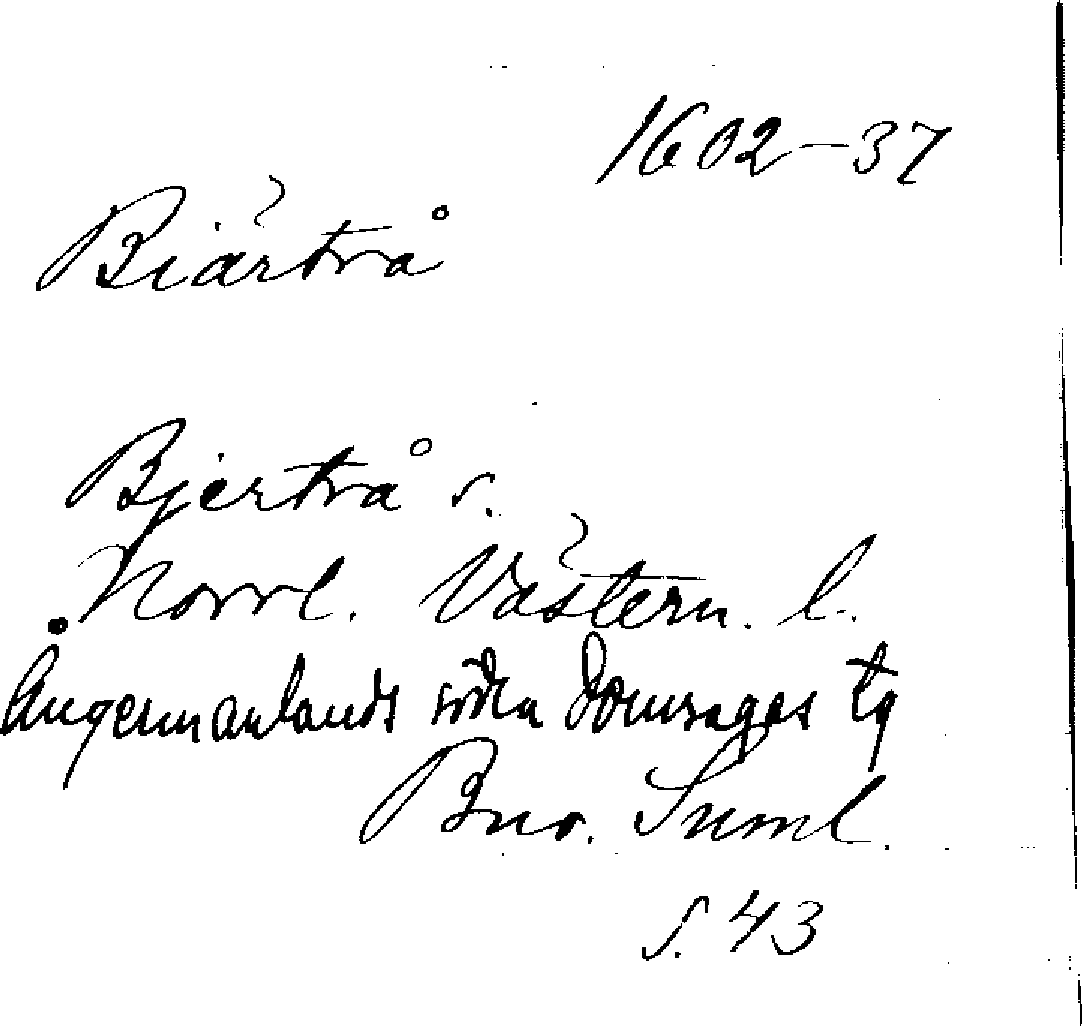 1602-37
Biärtrå
Bjertrå s.
Norrl. Västern. l.
Ångermanlands södra domsagas tg
Bur. Suml.
s. 43